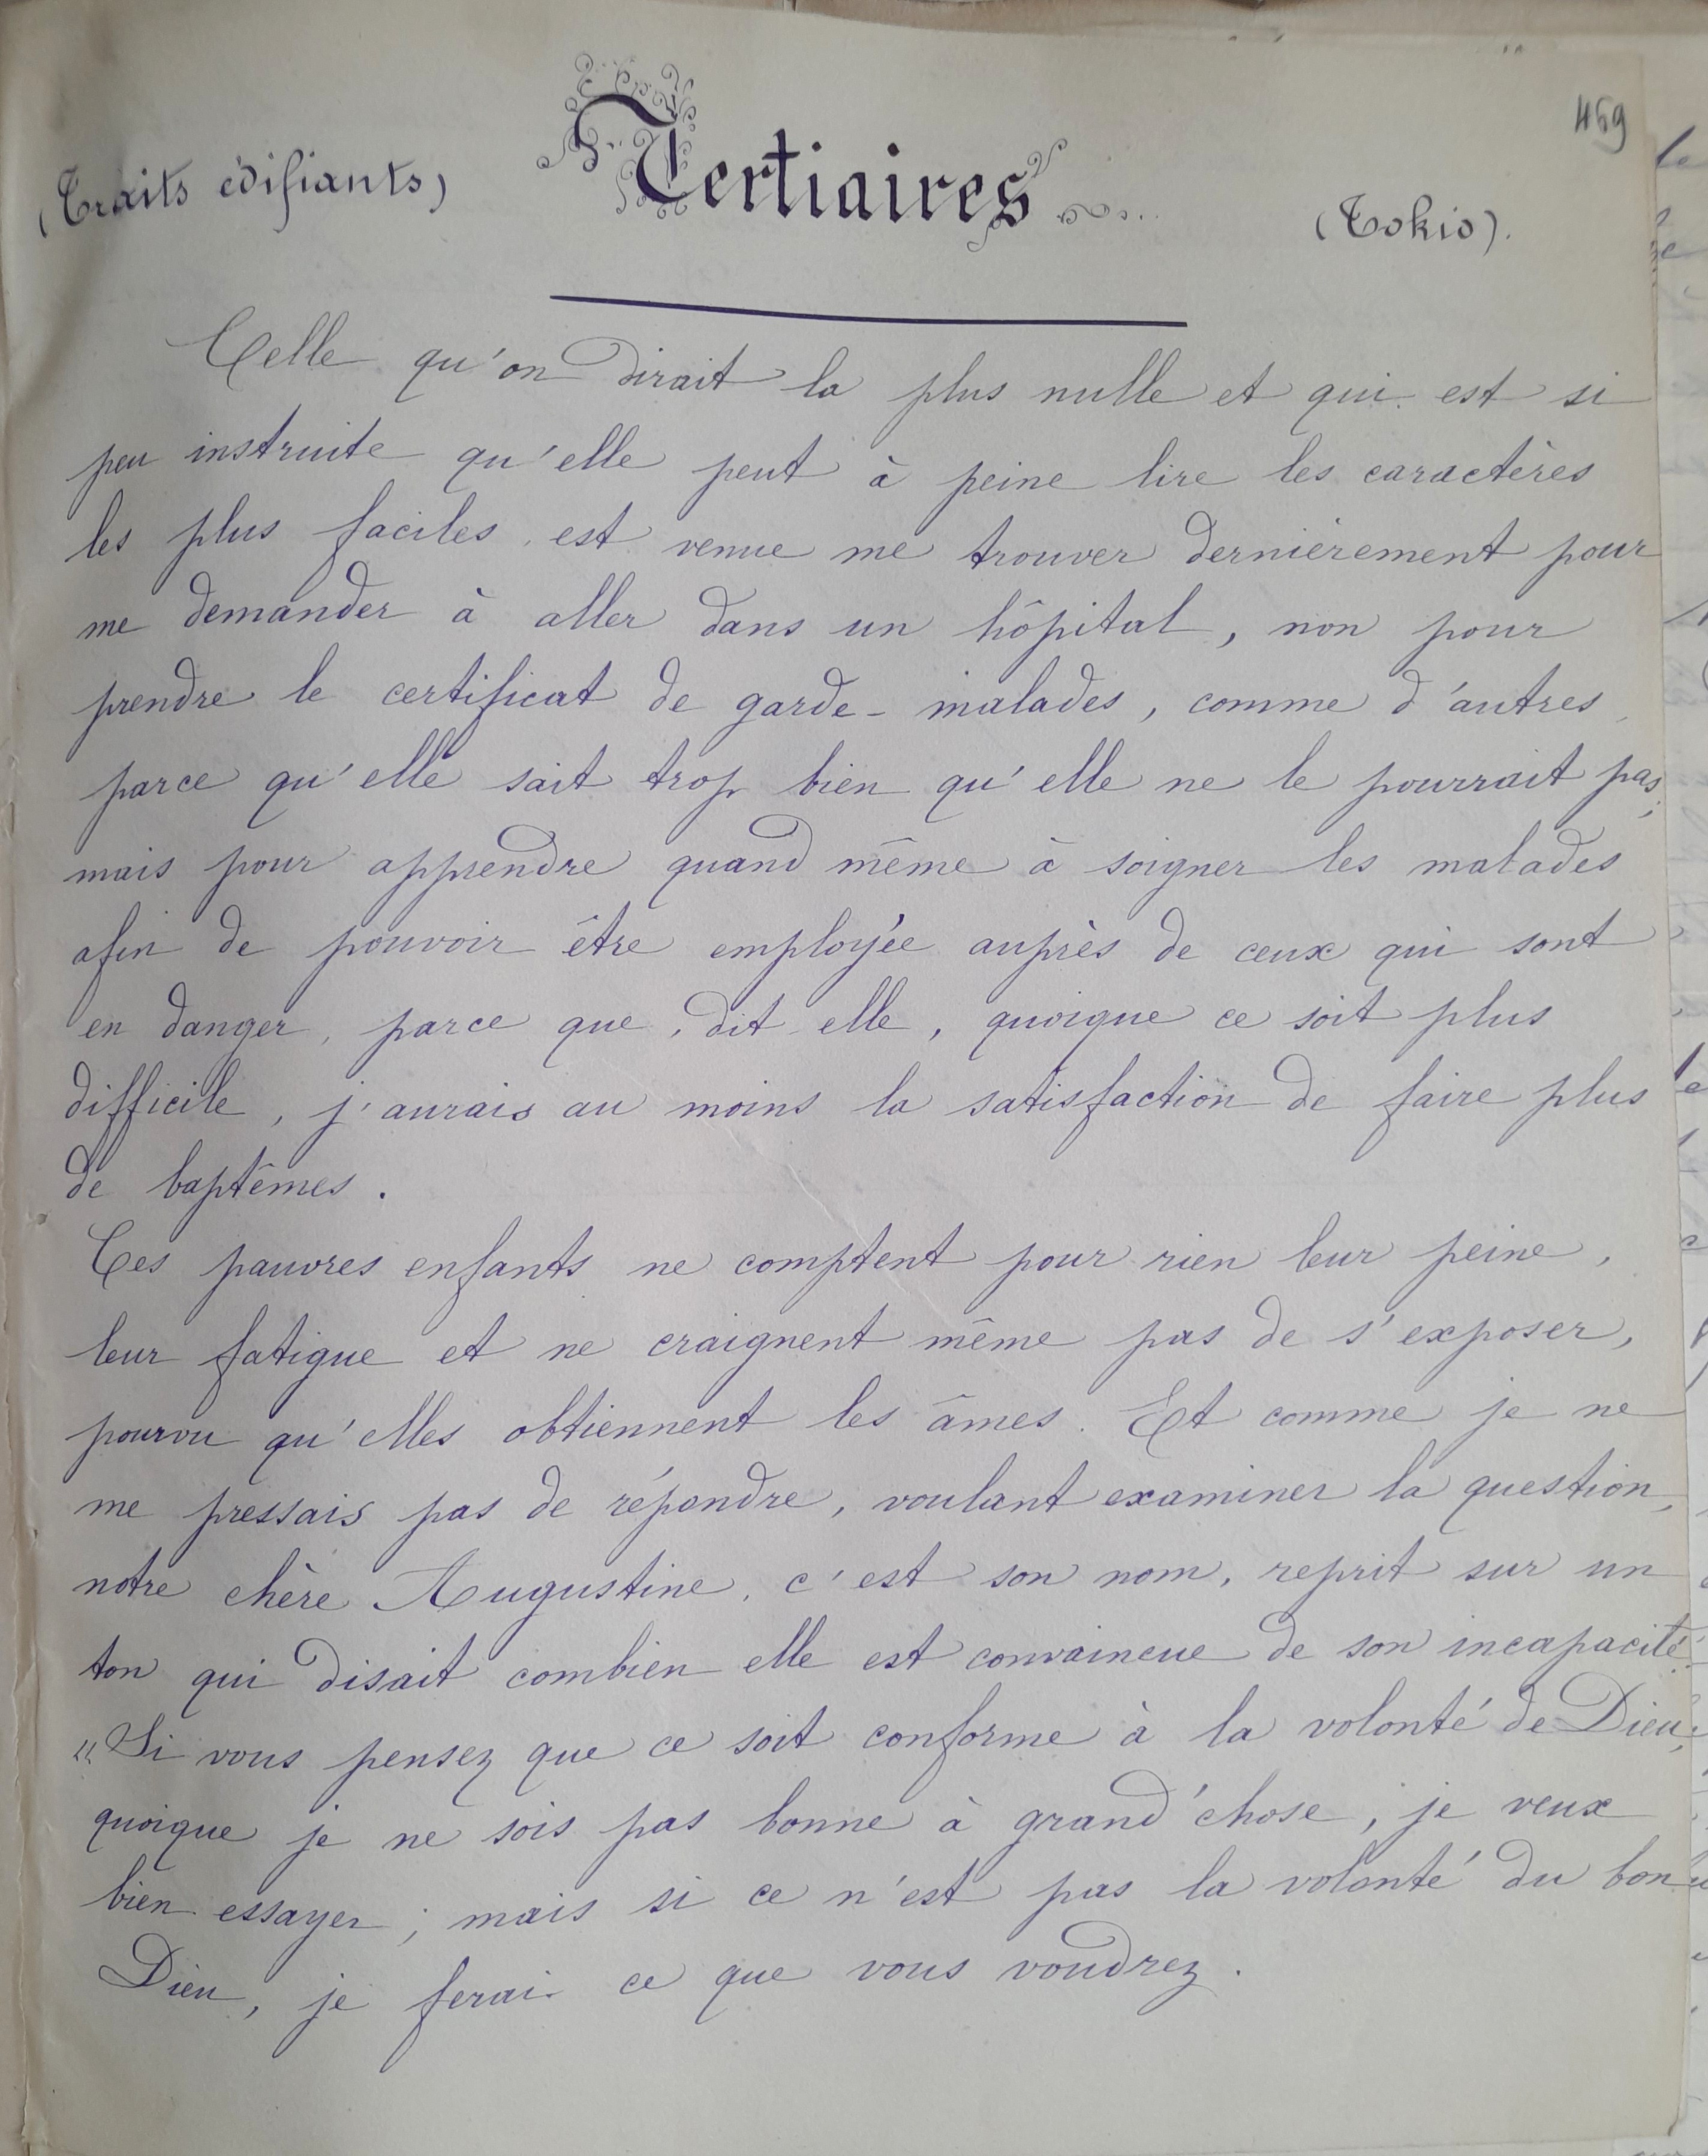 459
(Traits édifiants) Tertiaires (Tokio).
Celle qu'on dirait la plus nulle et qui est si
peu instruite qu'elle peut à peine lire les caractères
les plus faciles, est venue me trouver dernièrement pour
me demander à aller dans un hôpital, non pour
prendre le certificat de garde-malades, comme d'autres,
parce qu'elle sait trop bien qu'elle ne le pourrait pas,
mais pour apprendre quand même à soigner les malades
afin de pouvoir être employée auprès de ceux qui sont
en danger, parce que, dit-elle, quoique ce soit plus
difficile, j'aurais au moins la satisfaction de faire plus
de baptêmes.
Ces pauvres enfants ne comptent pour rien leur peine,
leur fatigue et ne craignent même pas de s'exposer,
pourvu qu'elles obtiennent les âmes. Et comme je ne
me pressais pas de répondre, voulant examiner la question,
notre chère Augustine, c'est son nom, reprit sur un
ton qui disait combien elle est convaincue de son incapacité.
"Si vous pensez que ce soit conforme à la volonté de Dieu,
quoique je ne sois pas bonne à grand'chose, je veux
bien essayer; mais si ce n'est pas la volonté du bon
Dieu, je ferai ce que vous voudrez.